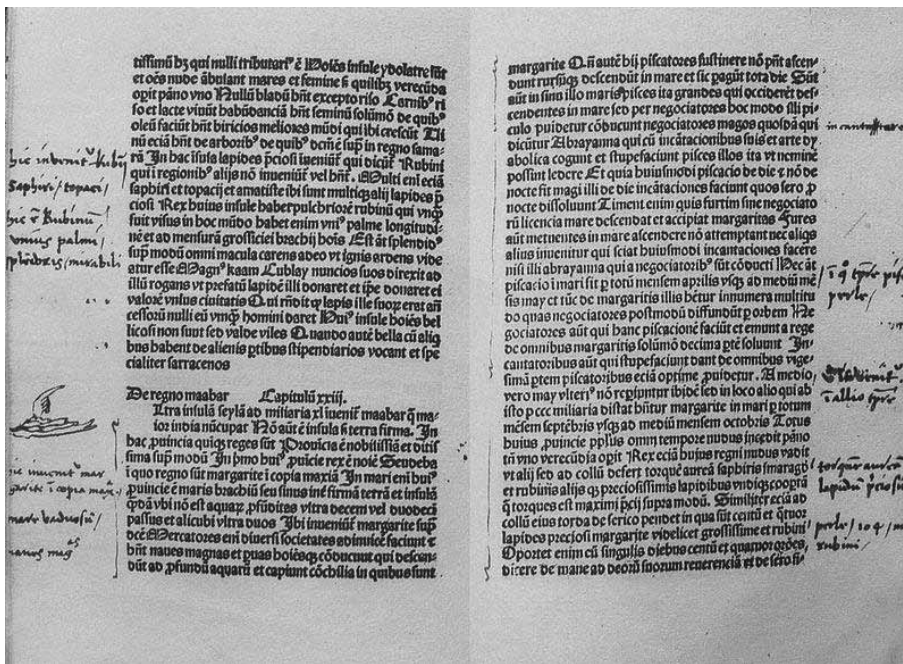 tissimū bʒ qui nulli tributariꝰ ē Hoīes insule ydolatre sūt
et oēs nude ābulant mares et femine sꝫ quilibʒ verecūda
opit pāno vno Nullū bladū hn̄t excepto riso Carnibꝰ ri
so et lacte viuūt habūdanciā hn̄t seminū solūmō de quibꝰ
oleū faciūt hn̄t biricios meliores mūdi qui ibi crescūt Ui
nū eciā hn̄t de arboribꝰ de quibꝰ dcm̄ ē sup̄ in regno sama
rā In hac īsula lapides p̄ciosi īueniūt̄ qui dicūt̄ Rubini
qui ī regionibꝰ alijs nō īueniūt̄ vel hn̄t̄. Multi enī eciā
saphiri et topacij et amatiste ibi sunt multiqʒ alij lapides p̄
ciosi Rex huius insule habet pulchriorē rubinū qui vnqʒ
fuit visus in hoc mūdo habet enim vniꝰ palme longitudi-
nē et ad mensurā grossiciei brachij hoīs Est āt splendidꝰ
sup̄ modū omni macula carens adeo vt ignis ardens vide
atur esse Magnꝰ kaam Cublay nuncios suos direxit ad
illū rogans vt prefatū lapidē illi donaret et ip̄e donaret ei
valorē vnius ciuitatis Qui rn̄dit qꝫ lapis ille suoꝝ erat an̄
cessorū nulli eū vnqʒ homini daret Huiꝰ insule hoīes bel
licosi non sunt sed valde viles Quando autē bella cū aliq̄
bus habent de alienis ꝑtibus stipendiarios vocant et spe
cialiter sarracenos
De regno maabar Capitulū xxiii.
Ultra insulā seylā ad miliaria xl īuenit̄ maabar q̄ ma-
ior india nūcupat̄ Nō aūt ē insula sꝫ terra firma. In
hac ꝓuincia quiqʒ reges sūt Prouīcia ē nobilissia et ditis
sima sup̄ modū In p̄mo huiꝰ ꝓuīcie rex ē noīe Seudeba
ī quo regno sūt margarite ī copia maxīa In mari enī huiꝰ
ꝓuincie ē maris brachiū seu sinus int̄ firmā terrā et insulā
q̄ndā vbi nō est aquaꝝ ꝓfūditas vltra decem vel duodecī
passus et alicubi vltra duos Ibi īueniūt̄ margarite sup̄
dc̄e Mercatores enī diuersi societates adinuicē faciunt ⁊
hn̄t naues magnas et puas hoīesqʒ cōducunt qui descen-
dūt ad ꝓfundū aquarū et capiunt cōchilia in quibus sunt
hic ē Rubinū
vnius palmi
margarite Qn̄ autē hij piscatores sustinere nō pn̄t ascen-
dunt rursūqʒ descendūt in mare et sic ꝑagūt tota die Sūt
aūt in sinu illo maris pisces ita grandes qui occiderēt des-
cendentes in mare sed per negociatores hoc modo illi pi-
culo ꝓuidetur cōducunt negociatores magos quosdā qui
dicūtur Abrayanna qui cū incātationibus suis et arte dy
abolica cogunt et stupefaciunt pisces illos ita vt neminē
possint ledere Et quia huiusmodi piscacio de die ⁊ nō de
nocte fit magi illi de die incātationes faciunt quos sero ꝓ
nocte dissoluunt Timent enim quis furtim sine negociato
rū licencia mare descendat et accipiat margaritas Fures
aūt metuentes in mare ascendere nō attemptant nec aliqs
alius inuenitur qui sciat huiusmodi incantaciones facere
nisi illi abrayanna qui a negociatoribꝰ sūt cōducti Hec āt
piscacio ī mari fit p totū mensem aprilis vsqʒ ad mediū mē
sis may et tūc de margaritis illis hētur innumera multitu
do quas negociatores postmodū diffundūt ꝑ orbem Ne
gociatores aūt qui hanc piscacionē faciūt et emunt a rege
de omnibus margaritis solūmō decima ꝑtē soluunt In-
cantatoribus aūt qui stupefaciunt dant de omnibus vige-
simā ꝑtem piscatoribus eciā optime ꝓuidetur. A medio
vero may vlteriꝰ nō repiuntur ibidē sed in loco alio qui ab
isto p ccc miliaria distat hn̄tur margarite in mari p totum
mēsem septēbris vsqʒ ad mediū mensem octobris Totus
huius ꝓuincie pplus omni tempore nudus incedit pāno
tn̄ vno verecūdia opit Rex eciā huius regni nudus vadit
vt alij sed ad collū defert torquē aureā saphiris smaragdꝭ
et rubinis alijs qʒ preciosissimis lapidibus vndiqʒ coopertā
q̄ torques est maximi p̄cij supra modū. Similiter eciā ad
collū eius corda de serico pendet in qua sūt centū et q̄tuor
lapides preciosi margarite videlicet grossissime et rubini
Oportet enim eū singulis diebus centū et quatuor orōes,
dicere de mane ad deorū suorum reuerenciā et de sero si-
torquē aureā
lapidū p̄ciosū
perle / 104 /
rubini /